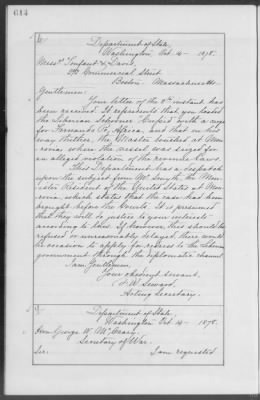 614
Department of State,
Washington, Oct. 14 - 1878.
Messrs. & Davis,
Commercial Street
Boston - Massachusetts.
Gentlemen:
Your letter of the instant has
been received. It represents that you loaded
the Liberian Schooner with a cargo
for Fernando Po, Africa, and that on his
way thither, the Master touched at Mon-
rovia, where the vessel was seized for
an alleged violation of the revenue laws.
This Department has a despatch
upon the subject from Mr. Smyth, the Min-
ister Resident of the United States at Mon-
rovia, which states that the case had been
brought before the Courts. It is presumed
that they will do justice to your interests
according to law. If, however, this should be
refused or unreasonably delayed, there would
be occasion to apply for redress to the Liberian
government through the diplomatic channel.
I am, Gentlemen,
Your obedient servant,
F. W. Seward,
Acting Secretary.
Department of State,
Washington, Oct. 14 - 1878.
Hon. George W. McCrary,
Secretary of War.
Sir:
I am requested